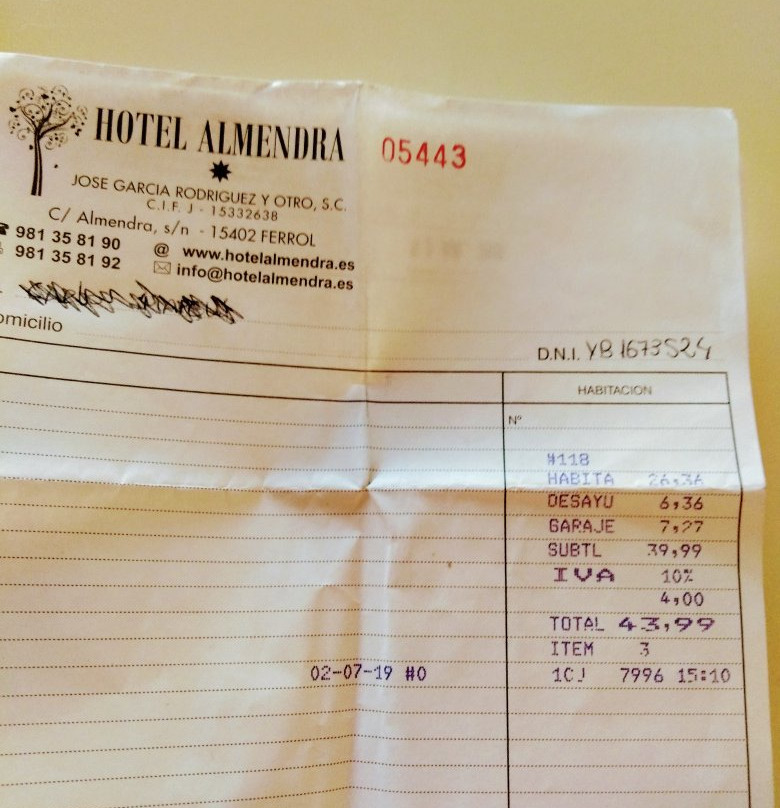 HOTEL ALMENDRA
05443
JOSE GARCIA RODRIGUEZ Y OTRO, S.C.
C.I.F. J - 15332638
C/ Almendra, s/n - 15402 FERROL
981 35 81 90 @ www.hotelalmendra.es
981 35 81 92 info@hotelalmendra.es
omicilio
D.N.I. YB1673524
HABITACION
Nº
#118
HABITA 26,36
DESAYU 6,36
GARAJE 7,27
SUBTL 39,99
IVA 10%
4,00
TOTAL 43,99
ITEM 3
02-07-19 #0 1CJ 7996 15:10